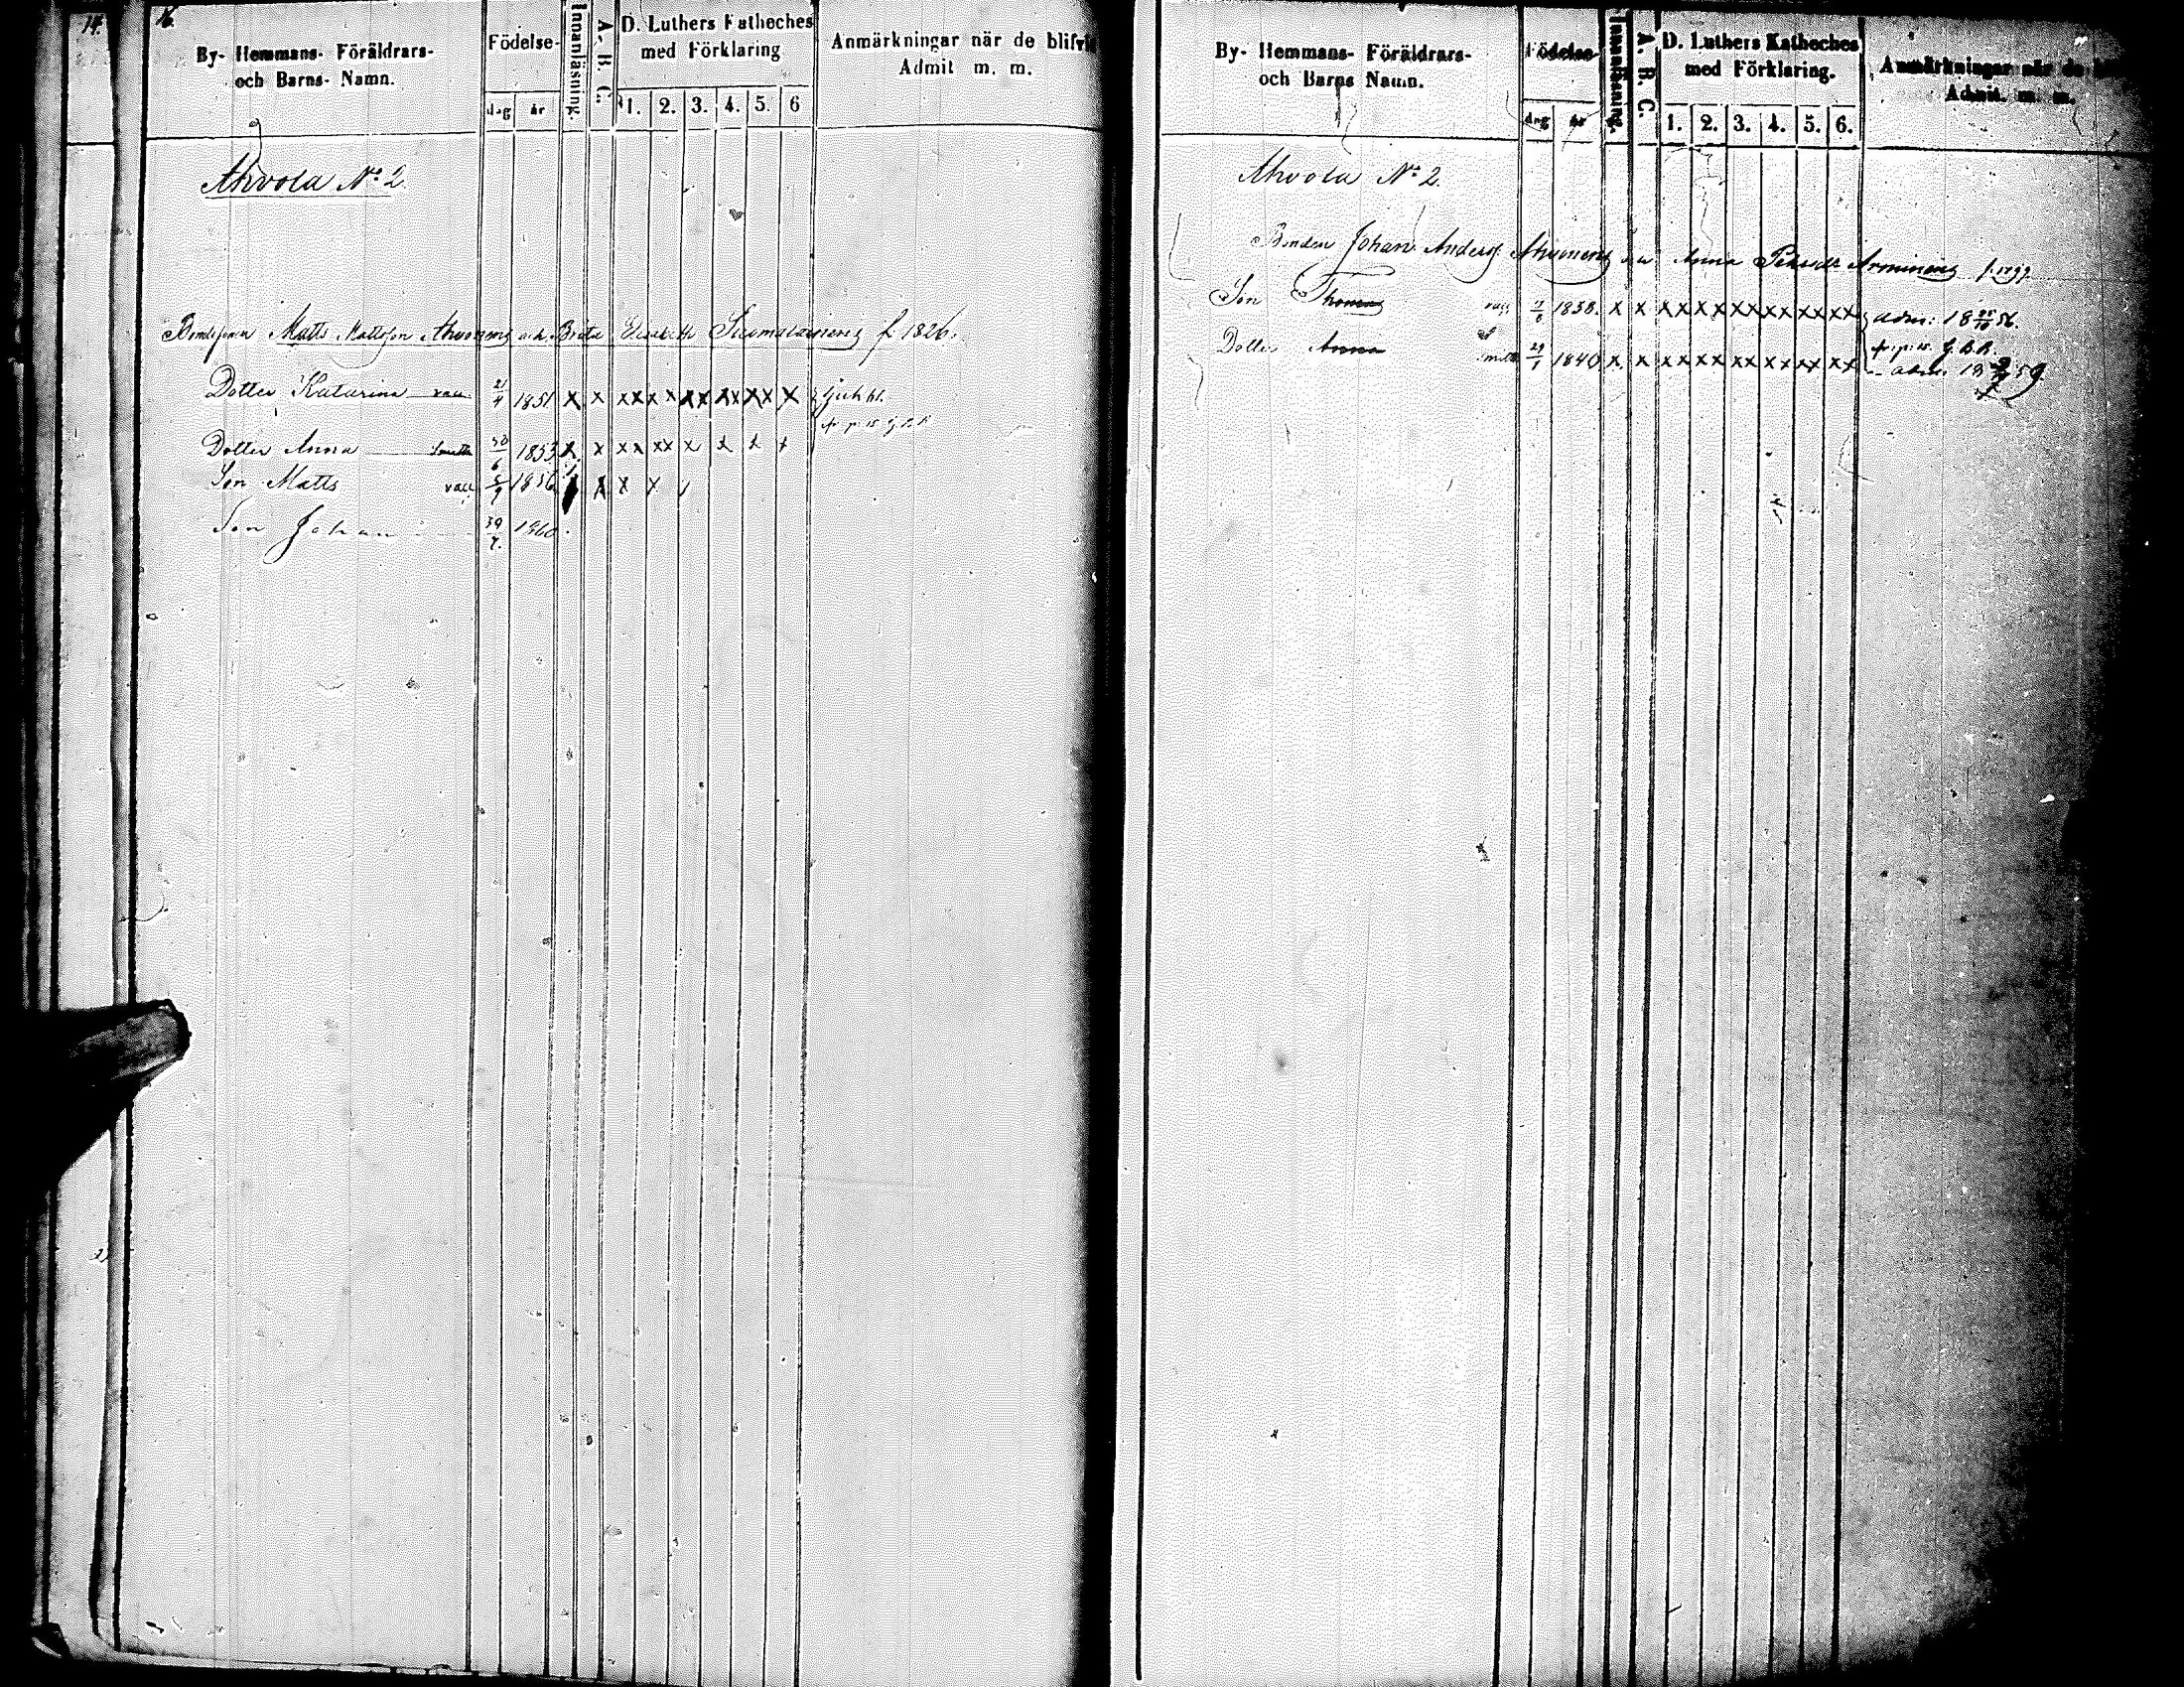 14.
16.
By- Hemmans- Föräldrars-
och Barns- Namn.
Födelse-
dag år
Innanläsning.
A. B. C.
D. Luthers Katheches
med Förklaring
1. 2. 3. 4. 5. 6
Anmärkningar när de blifvi
Admit m. m.
Ahvola No 2.
Matts Mattsson Ahvonen och Brita Elisabeth Suomalainen f. 1826.
Dotter Katarina vacc. 21/4 1851 x x x x x x x x x x x x x
Dotter Anna 30/6 1853 x x x x x x x x x x
Son Matts vacc 5/9 1856 x x x
Son Johan 1860
By- Hemmans- Föräldrars-
och Barns Namn.
Födelse-
dag år
Innanläsning.
A. B. C.
D. Luthers Katheches
med Förklaring.
1. 2. 3. 4. 5. 6.
Anmärkningar när de
Admit. m. m.
Ahvola No 2.
Bonden Johan Anders. Ahvonen Anna f. 1799
Son Thomas vacc 1838. x x x x x x x x x x x x x x adm: 18 25/10 56.
Dotter Anna 29/1 1840 x x x x x x x x x x x x x x adm: 18 59